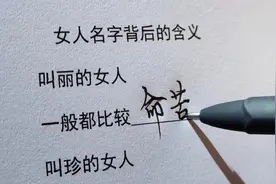 女人名字背后的含义
叫丽的女人
一般都比较命苦
叫珍的女人